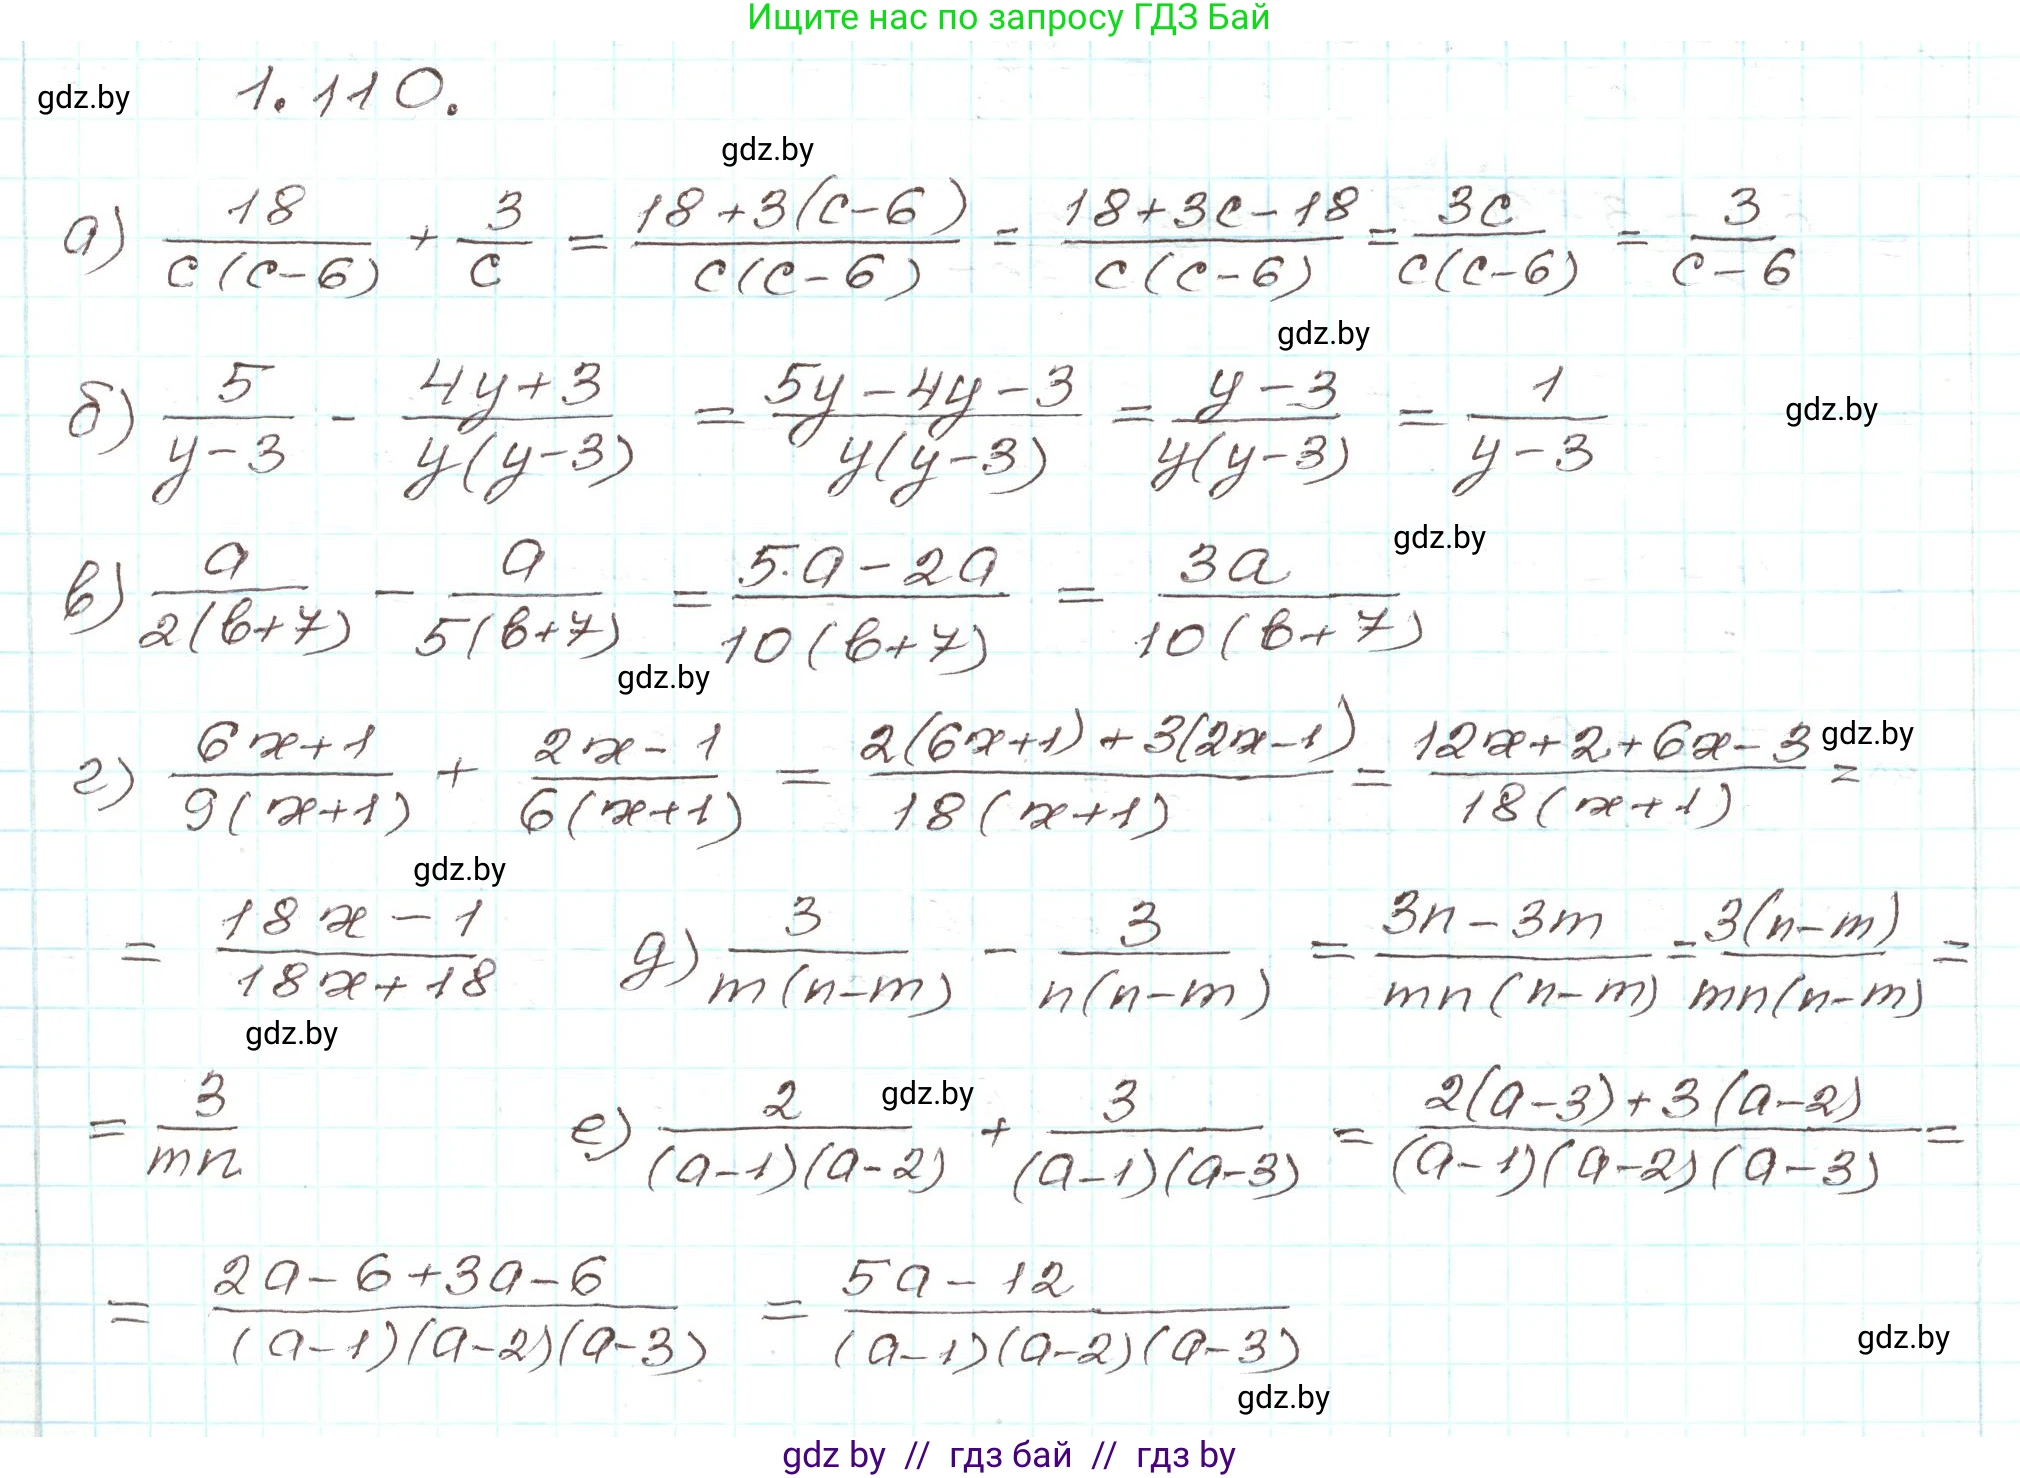 Ищите нас по запросу ГДЗ Бай
gdz.by 1.110.
gdz.by
а) 18/(c(c-6)) + 3/c = (18+3(c-6))/(c(c-6)) = (18+3c-18)/(c(c-6)) = 3c/(c(c-6)) = 3/(c-6)
gdz.by
б) 5/(y-3) - (4y+3)/(y(y-3)) = (5y-4y-3)/(y(y-3)) = (y-3)/(y(y-3)) = 1/(y-3) gdz.by
gdz.by
в) a/(2(b+7)) - a/(5(b+7)) = (5·a-2a)/(10(b+7)) = 3a/(10(b+7))
gdz.by
г) (6x+1)/(9(x+1)) + (2x-1)/(6(x+1)) = (2(6x+1)+3(2x-1))/(18(x+1)) = (12x+2+6x-3)/(18(x+1)) = gdz.by
gdz.by
= (18x-1)/(18x+18) д) 3/(m(n-m)) - 3/(n(n-m)) = (3n-3m)/(mn(n-m)) = 3(n-m)/(mn(n-m)) =
gdz.by
= 3/(mn) е) 2/((a-1)(a-2)) + 3/((a-1)(a-3)) = (2(a-3)+3(a-2))/((a-1)(a-2)(a-3)) =
gdz.by
= (2a-6+3a-6)/((a-1)(a-2)(a-3)) = (5a-12)/((a-1)(a-2)(a-3))
gdz.by
gdz.by
gdz by // гдз бай // гдз by